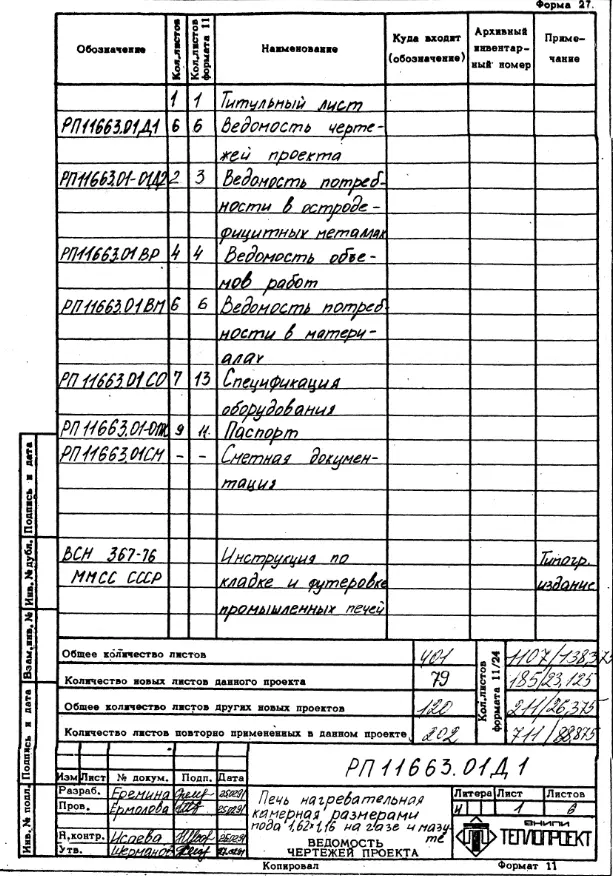 Форма 27.
Обозначение Кол.листов Кол.листов формата 11 Наименование Куда входит (обозначение) Архивный инвентарный номер Примечание
1 1 Титульный лист
РП11663.01Д1 6 6 Ведомость черте-
жей проекта
РП11663.01-01Д2 2 3 Ведомость потреб-
ности в остроде-
фицитных металлах
РП11663.01ВР 4 4 Ведомость объе-
мов работ
РП11663.01ВМ 6 6 Ведомость потреб
ности в матери-
алах
РП11663.01СО 7 13 Спецификация
оборудования
9 Паспорт
РП11663.01СМ - - Сметная докумен-
тация
ВСН 367-76 Инструкция по Типогр.
ММСС СССР кладке и футеровке издание
промышленных печей
Общее количество листов 401 1107/138,375
Количество новых листов данного проекта 79 185/23,125
Общее количество листов других новых проектов 120 211/26,375
Количество листов повторно примененных в данном проекте 202 711/88,875
Кол.листов формата 11/24
РП11663.01Д1
Изм Лист № докум. Подп. Дата
Разраб. Еремина
Пров. Ермолова
Н,контр. Исаева
Утв.
Печь нагревательная
камерная размерами
пода 1,62×1,16 на газе и мазу-
те
ВЕДОМОСТЬ
ЧЕРТЕЖЕЙ ПРОЕКТА
Литера Лист Листов
И 1 6
ВНИПИ
ТЕПЛОПРОЕКТ
Копировал Формат 11
Инв.№ подл. Подпись и дата Взам.инв.№ Инв.№ дубл. Подпись и дата